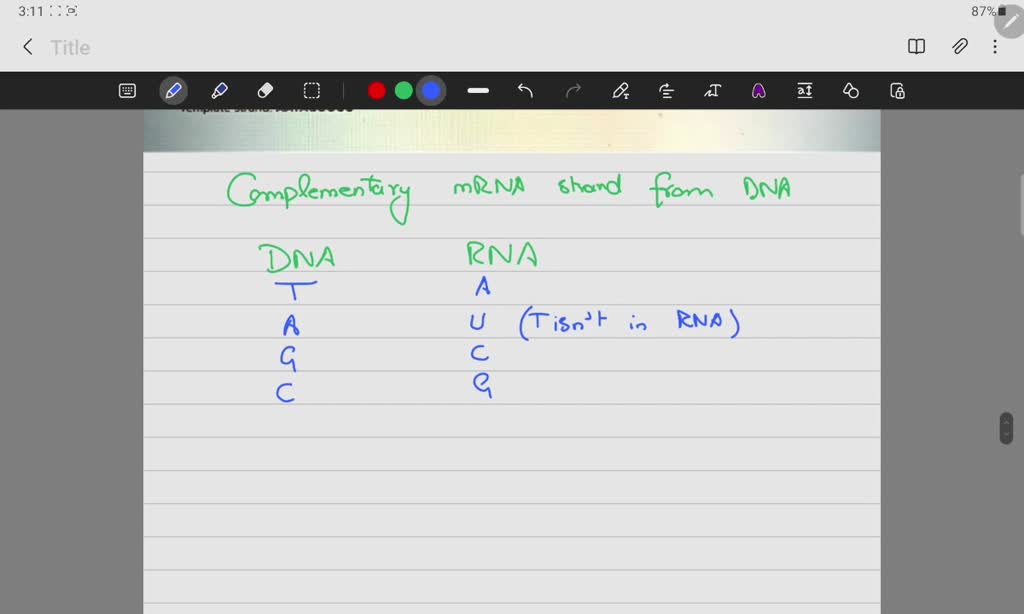 3:11
87%
Title
Complementary mRNA strand from DNA
DNA RNA
T A
A U (T isn't in RNA)
G C
C G